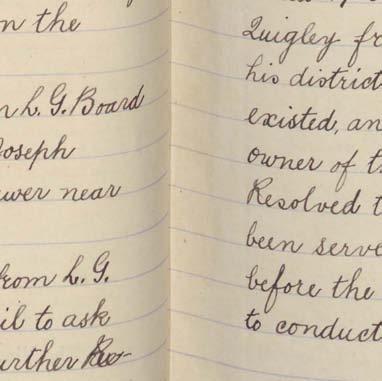 n the
n L. G. Board
Joseph
ewer near
from L. G.
il to ask
urther
Quigley fr
his district
existed, an
owner of t
Resolved t
been serve
before the
to conduct